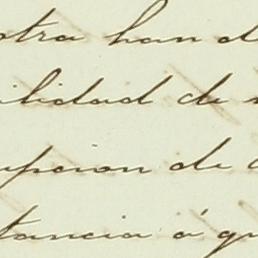 otra han d
ilidad de
upcion de
tancia á qu